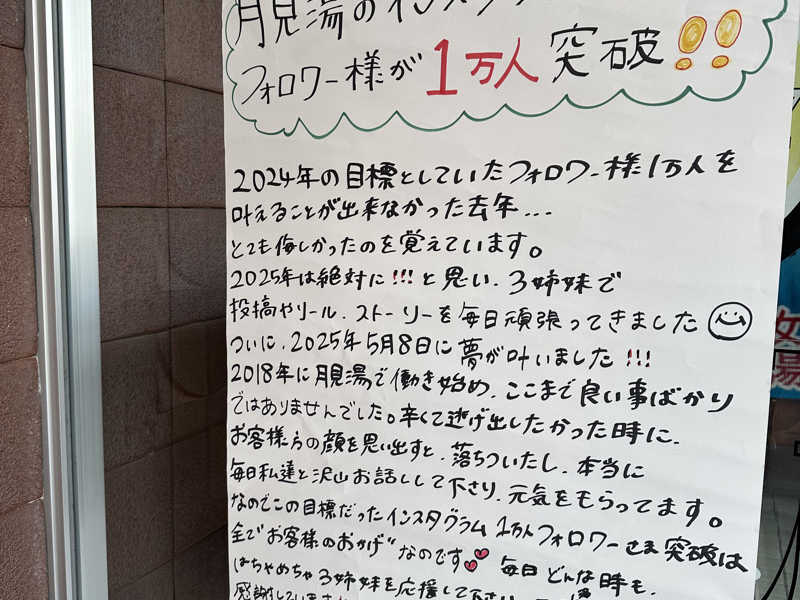 月見湯のインスタグ
フォロワー様が1万人突破!!
2024年の目標としていたフォロワー様1万人を
叶えることが出来なかった去年...
とても悔しかったのを覚えています。
2025年は絶対に!!!と思い、3姉妹で
投稿やリール、ストーリーを毎日頑張ってきました
ついに、2025年5月8日に夢が叶いました!!!
2018年に月見湯で働き始め、ここまで良い事ばかり
ではありませんでした。辛くて逃げ出したかった時に、
お客様方の顔を思い出すと、落ちついたし、本当に
毎日私達と沢山お話しして下さり、元気をもらってます。
なのでこの目標だったインスタグラム1万人フォロワーさま突破は
全て"お客様のおかげ"なのです💕 毎日どんな時も、
はちゃめちゃ3姉妹を応援して下さい
感謝していま
女
湯